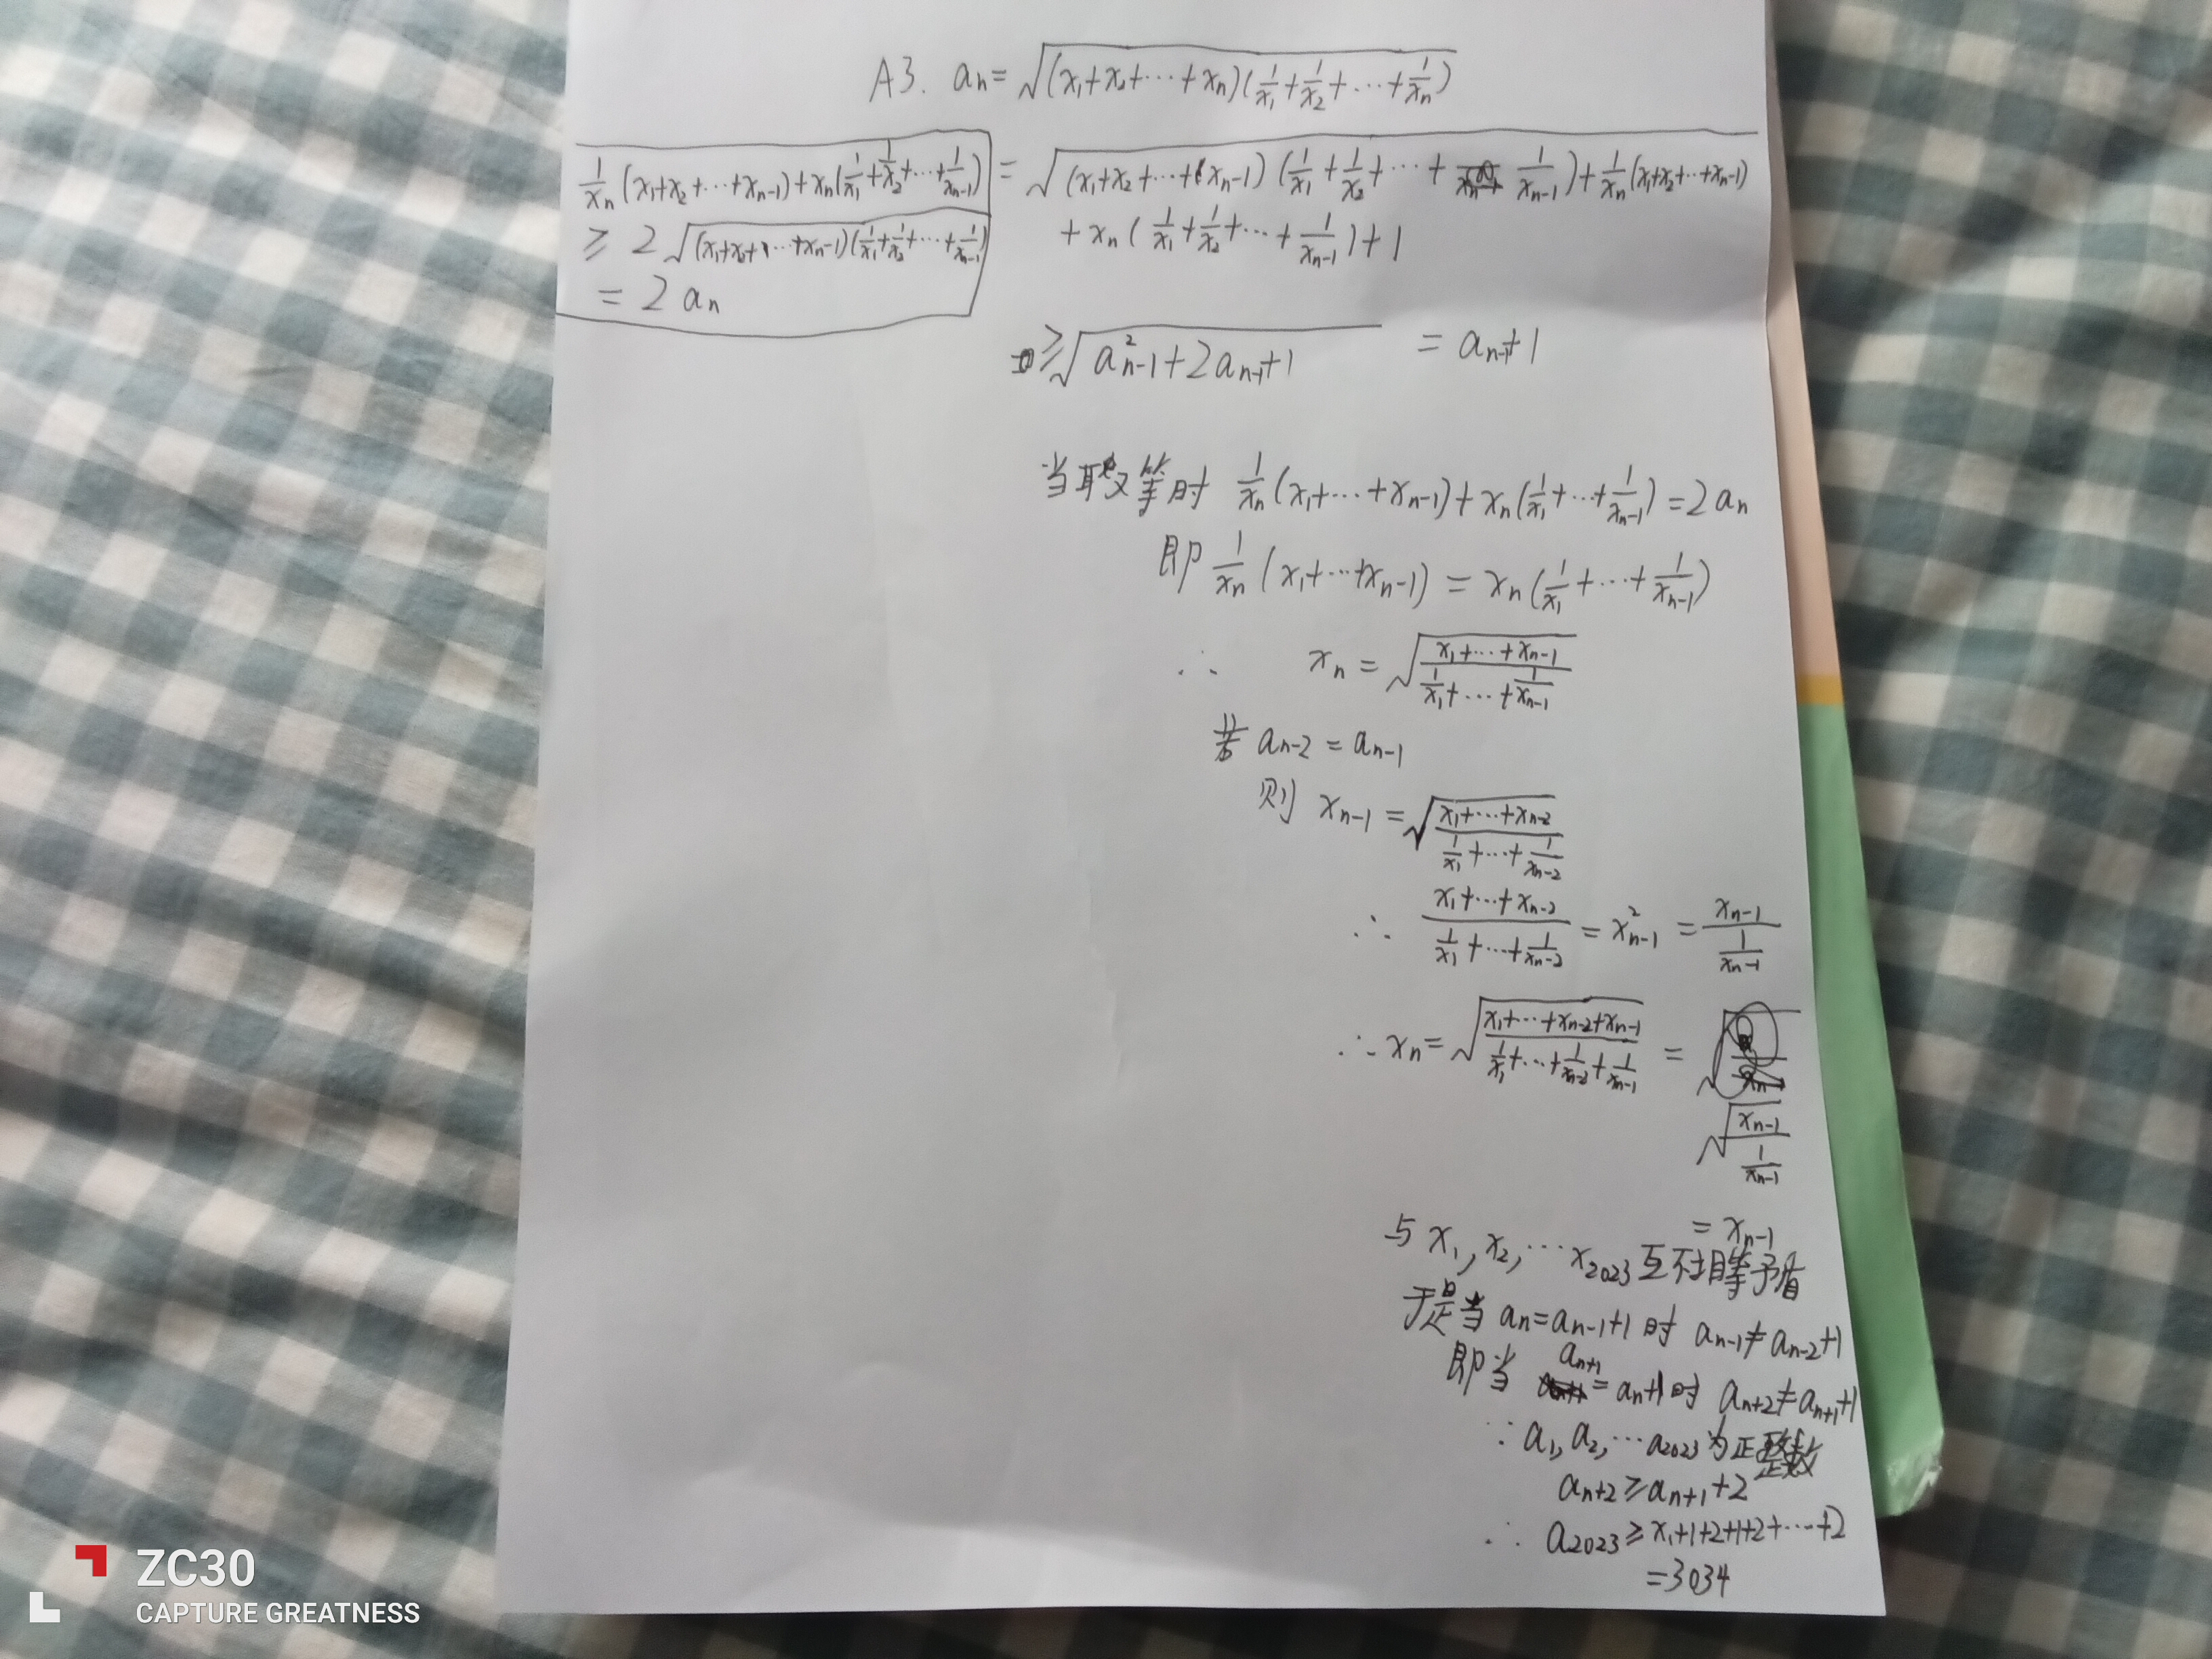 A3. aₙ=√((x₁+x₂+⋯+xₙ)(1/x₁+1/x₂+⋯+1/xₙ))
1/xₙ(x₁+x₂+⋯+xₙ₋₁)+xₙ(1/x₁+1/x₂+⋯+1/xₙ₋₁)
≥ 2√((x₁+x₂+⋯+xₙ₋₁)(1/x₁+1/x₂+⋯+1/xₙ₋₁))
= 2aₙ
=√((x₁+x₂+⋯+xₙ₋₁)(1/x₁+1/x₂+⋯+1/xₙ₋₁)+1/xₙ(x₁+x₂+⋯+xₙ₋₁)
+xₙ(1/x₁+1/x₂+⋯+1/xₙ₋₁)+1
≥√(a²ₙ₋₁+2aₙ₋₁+1) = aₙ₋₁+1
当取等时 1/xₙ(x₁+⋯+xₙ₋₁)+xₙ(1/x₁+⋯+1/xₙ₋₁)=2aₙ
即 1/xₙ(x₁+⋯+xₙ₋₁)=xₙ(1/x₁+⋯+1/xₙ₋₁)
∴ xₙ=√((x₁+⋯+xₙ₋₁)/(1/x₁+⋯+1/xₙ₋₁))
若 aₙ₋₂=aₙ₋₁
则 xₙ₋₁=√((x₁+⋯+xₙ₋₂)/(1/x₁+⋯+1/xₙ₋₂))
∴ (x₁+⋯+xₙ₋₂)/(1/x₁+⋯+1/xₙ₋₂)=x²ₙ₋₁=xₙ₋₁/(1/xₙ₋₁)
∴ xₙ=√((x₁+⋯+xₙ₋₂+xₙ₋₁)/(1/x₁+⋯+1/xₙ₋₂+1/xₙ₋₁)) =
√(xₙ₋₁/(1/xₙ₋₁))
= xₙ₋₁
与 x₁,x₂,⋯x₂₀₂₃互不相等矛盾
于是当 aₙ=aₙ₋₁+1 时 aₙ₋₁≠aₙ₋₂+1
即当 aₙ₊₁=aₙ+1时 aₙ₊₂≠aₙ₊₁+1
∵ a₁,a₂,⋯a₂₀₂₃为正整数
aₙ₊₂≥aₙ₊₁+2
∴ a₂₀₂₃≥x₁+1+2+1+2+⋯+2
=3034
ZC30
CAPTURE GREATNESS